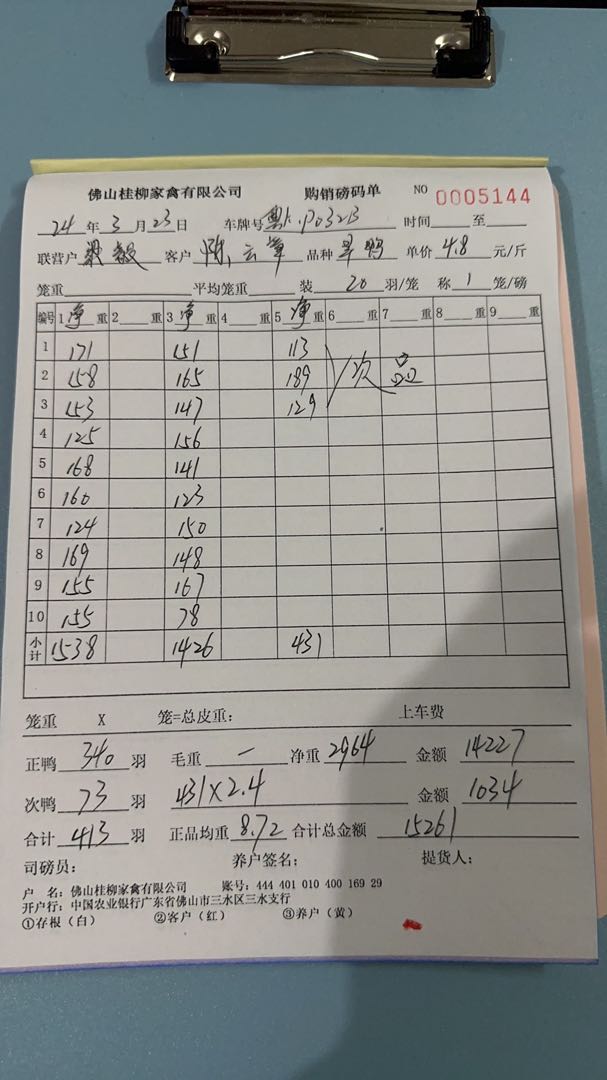 佛山桂柳家禽有限公司 购销磅码单 NO 0005144
24 年 3 月 23 日 车牌号 粤 P0323 时间 至
联营户 客户 陈云 品种 鸭 单价 4.8 元/斤
笼重 平均笼重 装 20 羽/笼 称 1 笼/磅
编号 1 净 重 2 重 3 净 重 4 重 5 净 重 6 重 7 重 8 重 9 重
1 171 151 113
2 158 165 189 次品
3 153 147 129
4 125 156
5 168 141
6 160 123
7 124 150
8 169 148
9 155 167
10 155 78
小计 1538 1426 431
笼重 X 笼=总皮重: 上车费
正鸭 340 羽 毛重 一 净重 2964 金额 14227
次鸭 73 羽 431×2.4 金额 1034
合计 413 羽 正品均重 8.72 合计总金额 15261
司磅员: 养户签名: 提货人:
户 名: 佛山桂柳家禽有限公司 账号: 444 401 010 400 169 29
开户行: 中国农业银行广东省佛山市三水区三水支行
①存根(白) ②客户(红) ③养户(黄)